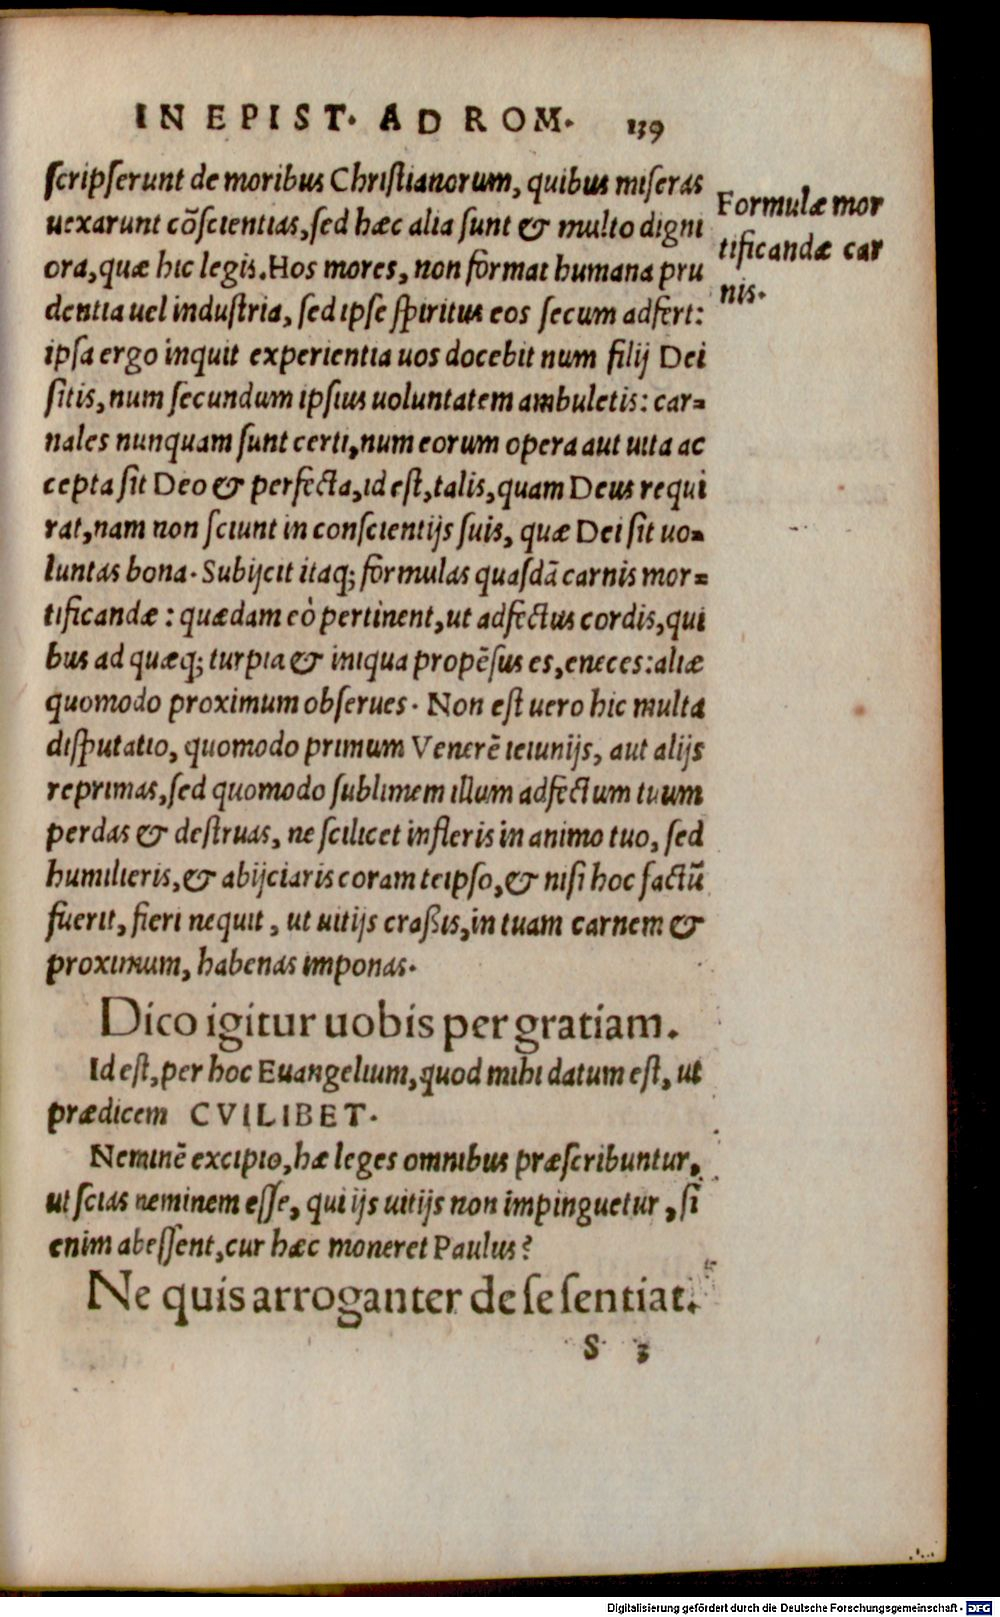 IN EPIST. AD ROM. 139
scripserunt de moribus Christianorum, quibus miseras
uexarunt cōscientias, sed hæc alia sunt & multo digni
ora, quæ hic legis. Hos mores, non format humana pru
dentia uel industria, sed ipse spiritus eos secum adfert:
ipsa ergo inquit experientia uos docebit num filij Dei
sitis, num secundum ipsius uoluntatem ambuletis: car=
nales nunquam sunt certi, num eorum opera aut uita ac
cepta sit Deo & perfecta, id est, talis, quam Deus requi
rat, nam non sciunt in conscientijs suis, quæ Dei sit uo=
luntas bona. Subijcit itaq; formulas quasdā carnis mor=
tificandæ: quædam eò pertinent, ut adfectus cordis, qui
bus ad quæq; turpia & iniqua propēsus es, eneces: aliæ
quomodo proximum obserues. Non est uero hic multa
disputatio, quomodo primum Venerē ieiunijs, aut alijs
reprimas, sed quomodo sublimem illum adfectum tuum
perdas & destruas, ne scilicet infleris in animo tuo, sed
humilieris, & abijciaris coram teipso, & nisi hoc factū
fuerit, fieri nequit, ut uitijs craßis, in tuam carnem &
proximum, habenas imponas.
Formulæ mor
tificandæ car
nis.
Dico igitur uobis per gratiam.
Id est, per hoc Euangelium, quod mihi datum est, ut
prædicem CVILIBET.
Neminē excipio, hæ leges omnibus præscribuntur,
ut scias neminem esse, qui ijs uitijs non impinguetur, si
enim abessent, cur hæc moneret Paulus?
Ne quis arroganter de se sentiat.
S 3
Digitalisierung gefördert durch die Deutsche Forschungsgemeinschaft - DFG